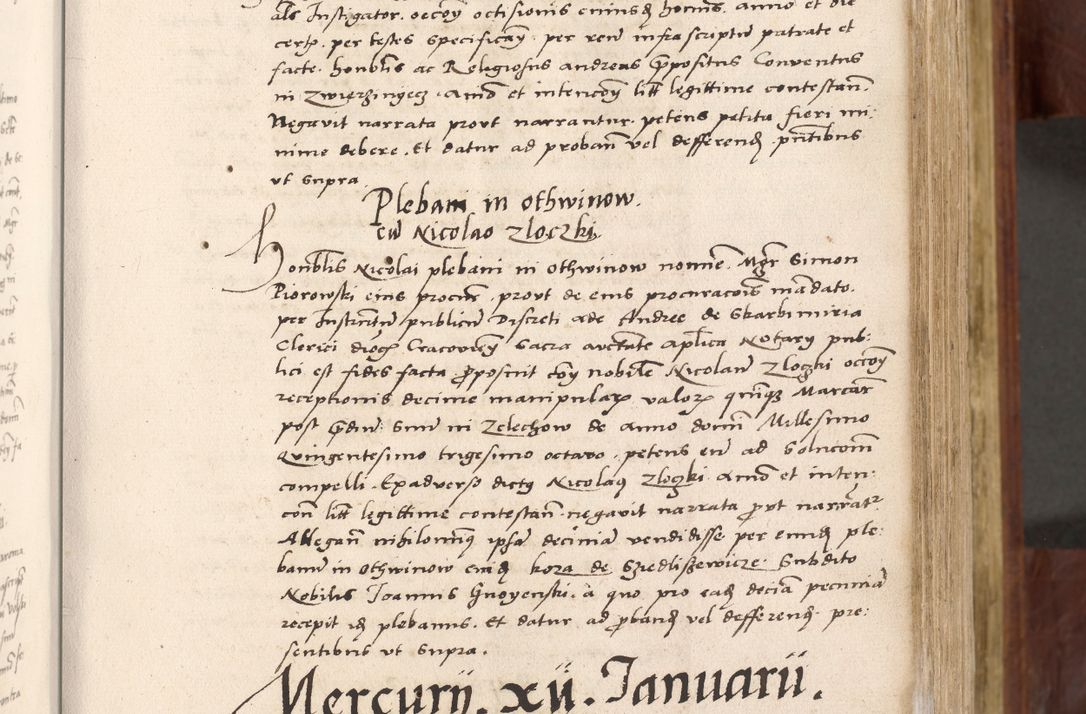 als Instigator. occoӯ octisionis eniusꝺ homis. anno et die
certꝫ. per testes specificaӯ. per reū infra scriptū patrate et
facte. honblis ac Religiosus andreas p̄positus Conventus
in Zwierzinyecz. Animo et intencoӯ litt legittime contestan̄.
Negavit narrata provt narrantur. petens petita fieri mi:
nime debere. Et datur ad proban̄ vel defferenꝺ. pn̄tibus
vt supra.
Plebani in othwinow.
cū Nicolao Zloczki.
Honblis Nicolai plebani in othwinow nomie. Mgr̄ Simon
Piorowski eius procur̄. provt de eius procuracois mādato.
per Instrūtū publicū Discreti ade Andree de Skarbimiria
Clerici dioc̄ Cracovien̄ Sacra auctate aplica Notarij pub:
lici est fides facta. p̄posuit coӯ nobilē Nicolaū Zloczki occoӯ
receptionis decime manipularꝫ valorꝫ quinqꝫ Marcar̄
post p̄diū Suū in Zelechow de anno domī Millesimo
Quingentesimo trigesimo octavo. petens eū ad Solucom̄
compelli. Exadverso dictꝰ Nicolaꝰ Zloczki animo et inten:
con̄ litt legittime contestan̄. negavit narrata provt narrātr
Allegan̄ nihilominꝰ ipsā decimā vendidisse per eundē ple:
banū in othwinow cuidā koza de Sziedliszewicze. Subdito
Nobilis Joannis Gnoyenski. a quo pro eadꝫ deciā pecuniā
recepit idꝫ plebanus. Et datur ad p̄banꝺ vel defferenꝺ. pre:
sentibus vt supra.
Mercurij. xij. Januarii.